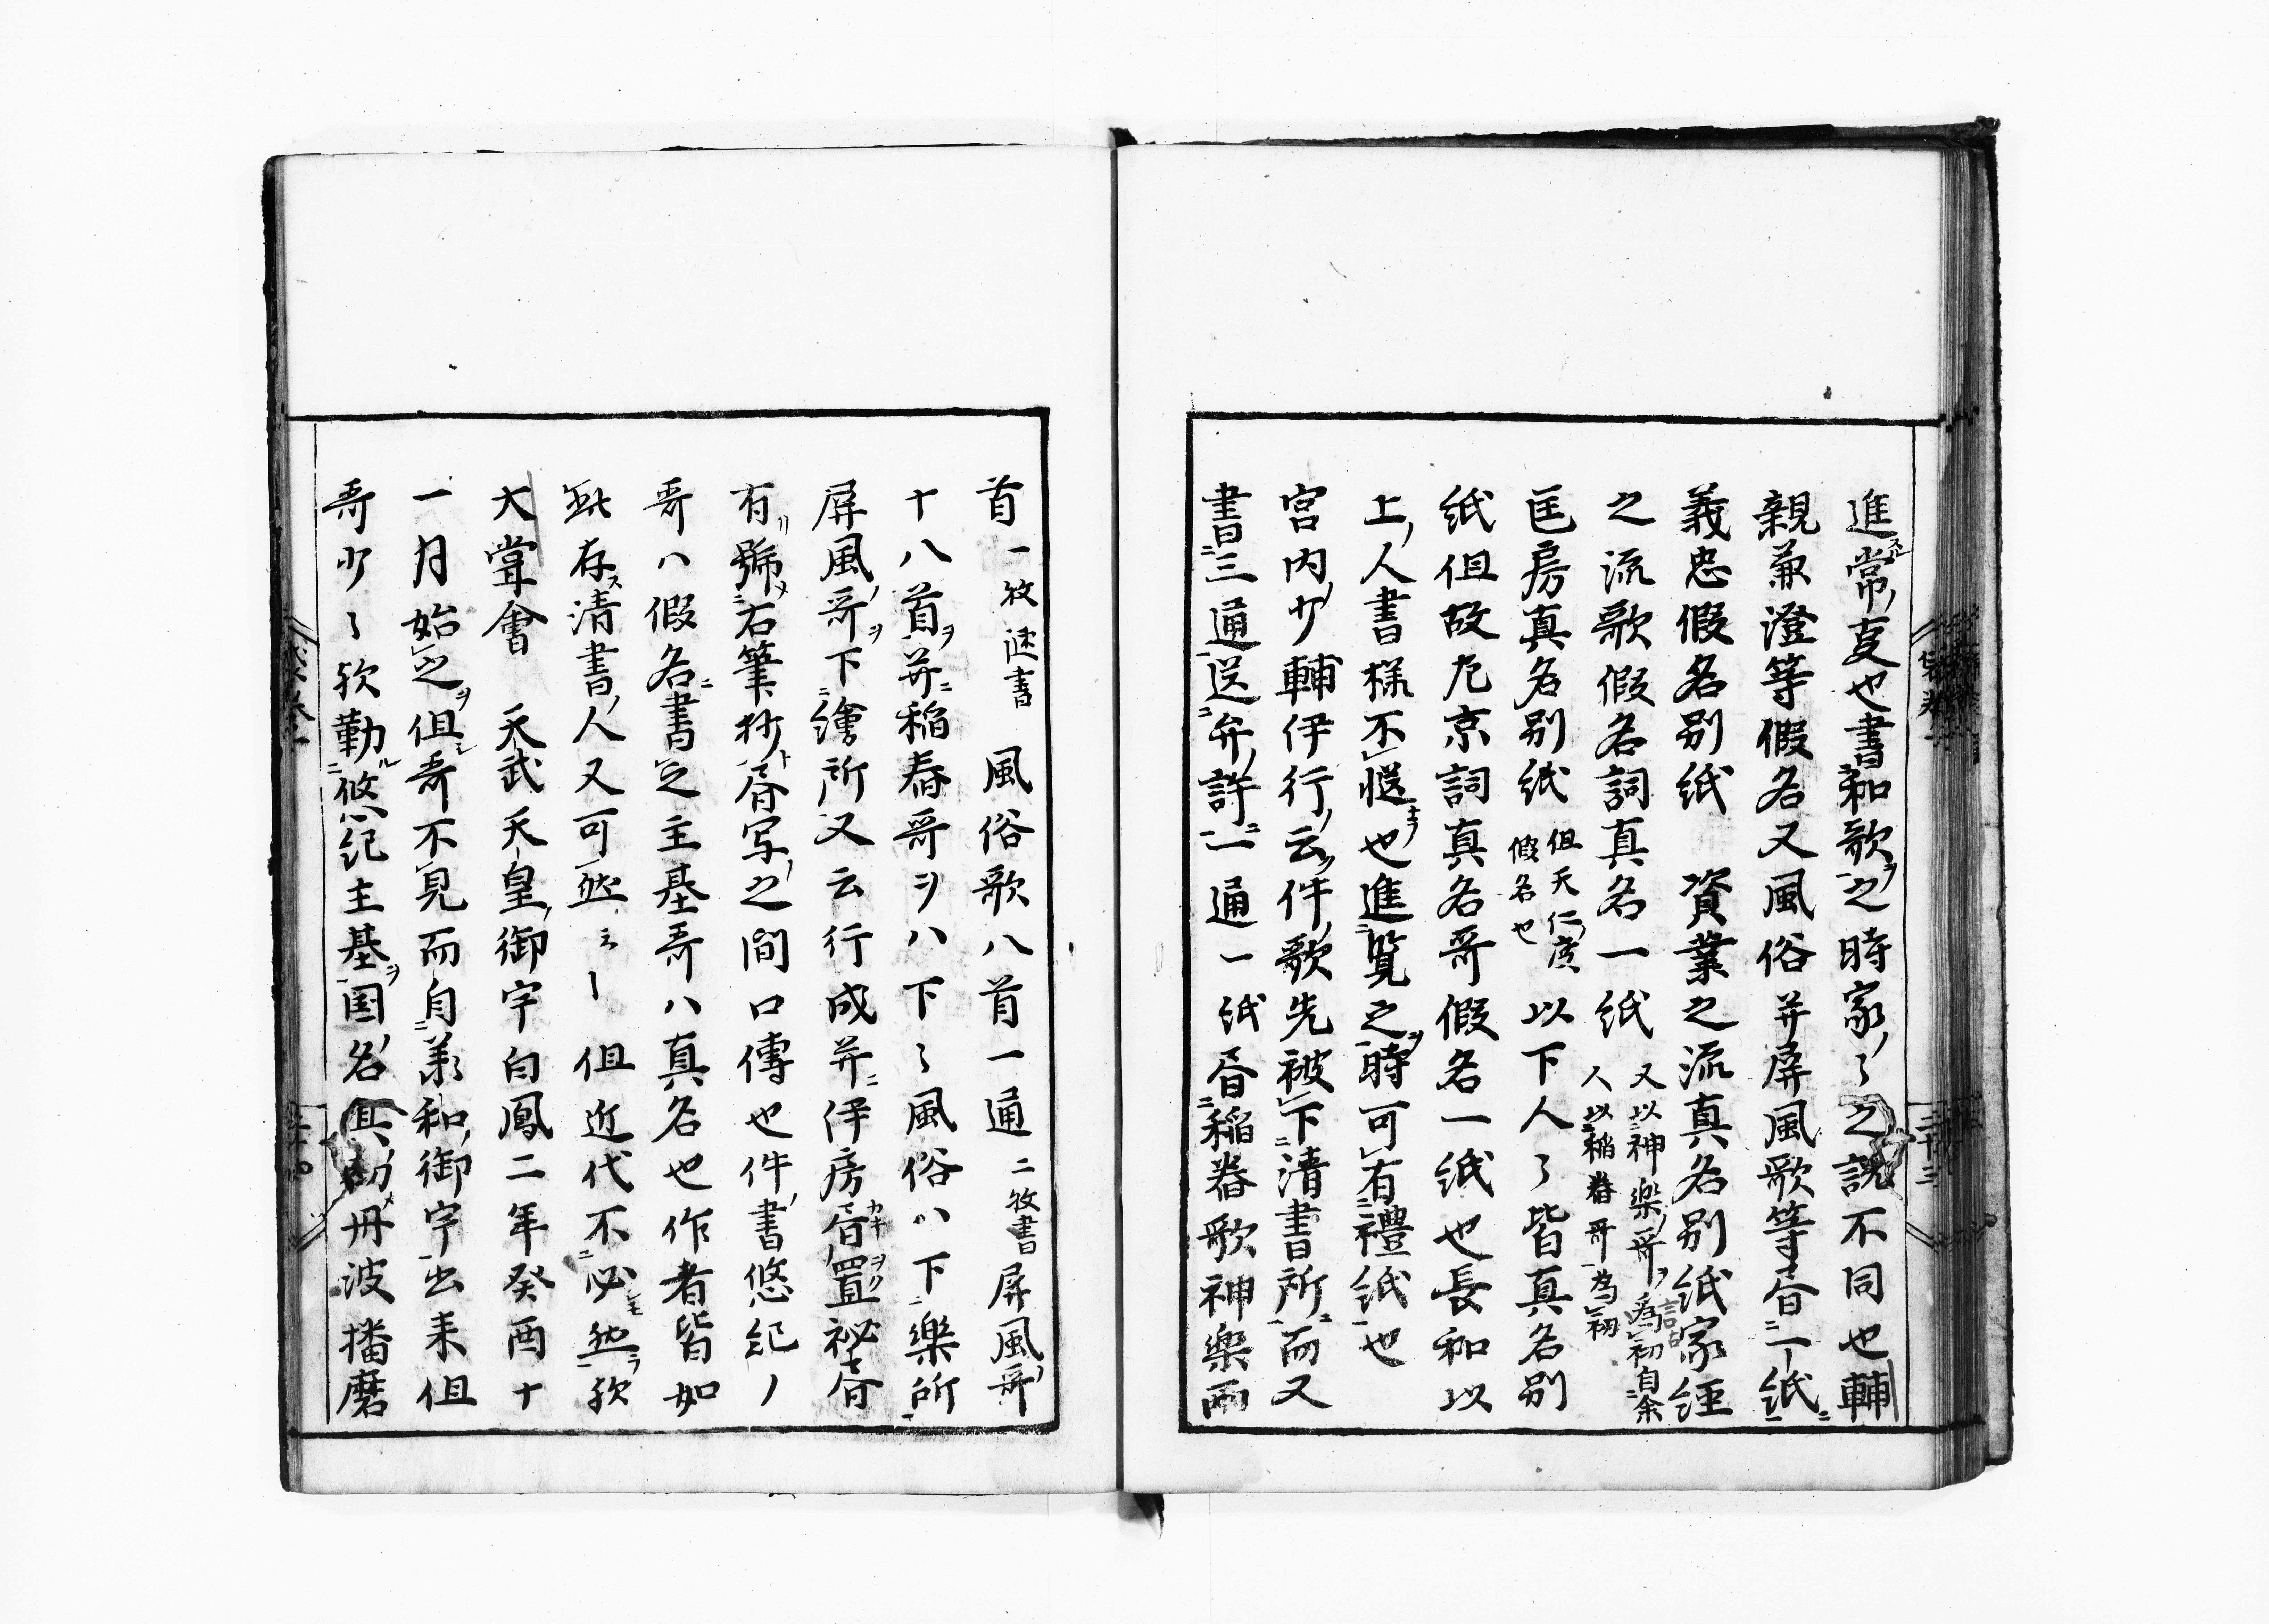 進常夏也書和歌之時家々之説不同也輔
親兼澄等假名又風俗并屏風歌等昏一紙
義忠假名別紙　資業之流真名別紙家経
之流歌假名詞真名一紙 又以神楽哥為初自余
人以稲舂哥為初
匡房真名別紙 但天仁度
假名也 以下人々皆真名別
紙但故左京詞真名哥假名一紙也長和以
上人書様不慥也進覧之時可有禮紙也
宮内少輔伊行云件歌先被下清書所而又
書三通送弁許一通一紙昏稲舂歌神楽両
首一枚速書　風俗歌八首一通 二枚書 屏風哥
十八首并稲舂哥ヲハ下々風俗ハ下楽所
屏風哥下繪所又云行成并伊房昏置秘昏
有號右筆抄昏写之間口傳也件書悠紀ノ
哥ハ假名書之主基哥ハ真名也作者皆如
此存清書人又可然云々但近代不必然歟
大嘗會　天武天皇御宇白鳳二年癸酉十
一月始之但哥不見而自承和御宇出来但
哥少々歟勤悠紀主基国名具
丹波播磨
二十三